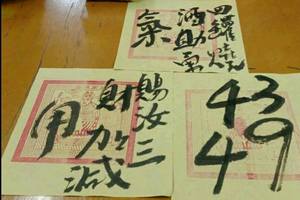 四罐燒
酒助
氣
賜汝三
財加減
用
43
49